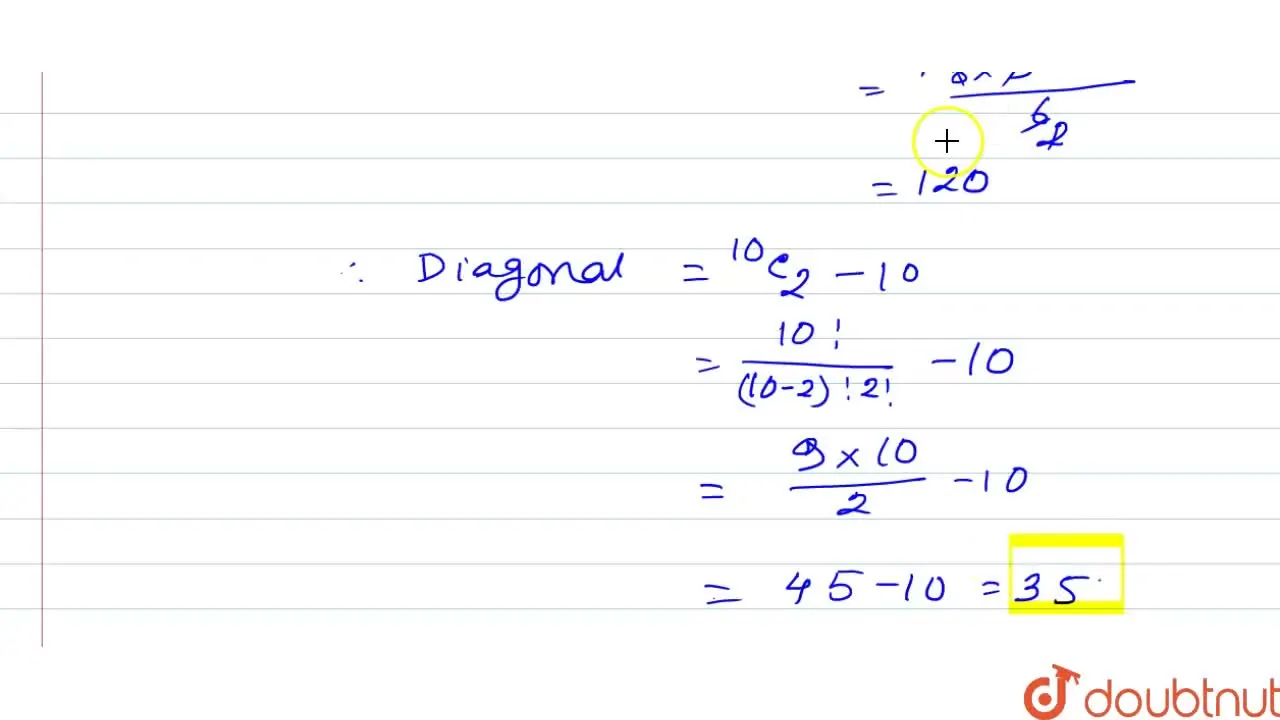 =
6 2
= 120
∴ Diagonal = ¹⁰C₂ – 10
= 10! / (10-2)! 2! – 10
= 9 × 10 / 2 – 10
= 45 – 10 = 35
doubtnut